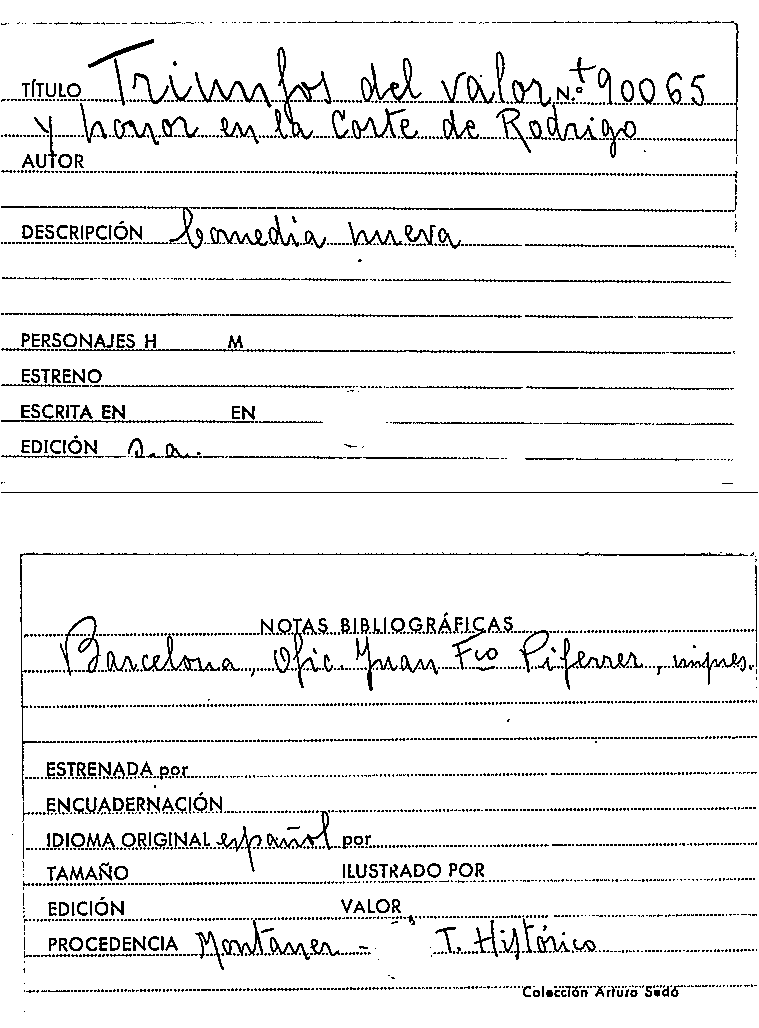 TÍTULO Triunfos del valor N.º +90065
y honor en la Corte de Rodrigo
AUTOR
DESCRIPCIÓN Comedia nueva
PERSONAJES H M
ESTRENO
ESCRITA EN EN
EDICIÓN s.a.
NOTAS BIBLIOGRÁFICAS
Barcelona, Ofic. Juan Fco Piferrer, impres.
ESTRENADA por
ENCUADERNACIÓN
IDIOMA ORIGINAL español por
TAMAÑO ILUSTRADO POR
EDICIÓN VALOR
PROCEDENCIA Montaner - T. Histórico
Colección Arturo Sedó